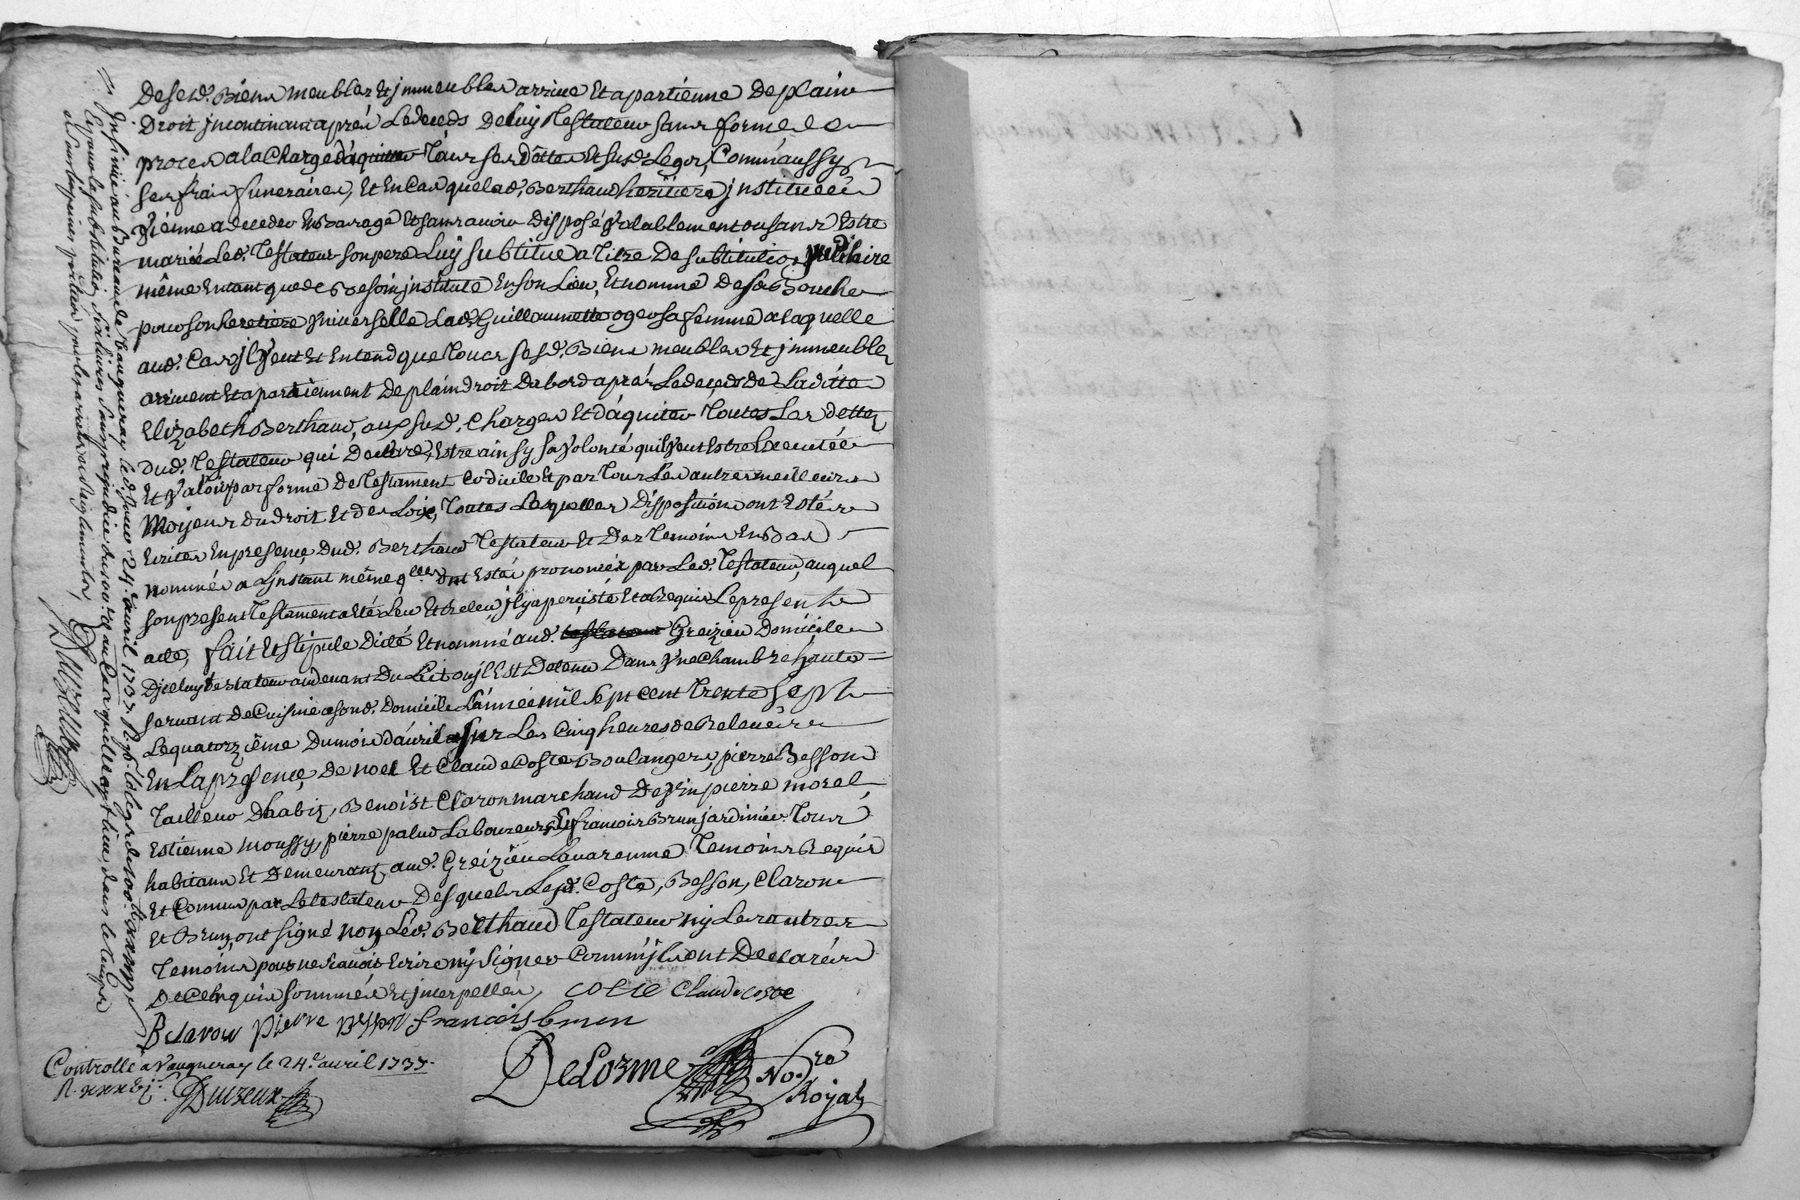 De sesd. Biens meubles et jmmeubles arrive et apartienne De plain
Droit jncontinant aprés Le deceds De luy Testateur sans forme de
proces a la Charge d'aquitter Tous ses dettes et susd. Legs, Comm'aussy
ses frais funeraires, Et En Cas que lad. Berthaud heritiere jnstituée
Vienne a deceder En Bas age Et sans avoir Disposé Valablement ou sans Estre
mariée Led. Testateur son pere Luy substitue a Titre De substitution pupillaire
même En tant que de Besoin jnstitue En son Lieu, Et nomme De sa Bouche
pour son heretiere Vniverselle Lad. Guillaumette ogeo sa femme a laquelle
aud. Cas jl Veut Et Entend que Tous sesd. Biens meubles Et jmmeubles
arivent Et apartiennent De plain droit Dabord aprés Le deceds De Laditte
Elizabeth Berthaud, aux susd. Charges Et d'aquiter Toutes Les dettes
dud. Testateur qui Declare, Estre ainsy sa Volonté qu'il Veut Estre Executée
Et Valoir par forme De Testament Codicile Et par Tous Les autres meilleurs
Moyens du droit Et des Loix, Toutes Lesquelles Disposition ont Estées
Ecrites En presence Dud. Berthaud Testateur Et Des Temoins En Bas
nommés a L'jnstant même q'lles ont Estés prononcéz par Led. Testateur, auquel
son present Testament a Eté Leu Et Releu jl y a percisté Et a Requis Le present
acte, fait Et stipulé Dicté Et nommé aud. Greizieu Domicile
Djceluy testateur au devant Du Lit ou jl Est Detenu Dans Vne Chambre haute
servant De Cuisine a sond. Domicile L'année mil sept cent Trente sept
Le quatorzième Du mois d'avril sur Les Cinq heures de Relevée
En La presence, De noel Et Claude Coste Boulangers, pierre Besson
Tailleur D'habis, Benoist Claron marchand De Vin pierre morel
Estienne moussy, pierre palud Laboureurs, Et francois Brun jardinier Tous
habitans Et Demeurant, aud. Greizieu Lavarenne Temoins Requis
Et Connus par Le testateur Desquels Lesd. Coste, Besson, Claron
Et Brun, ont signé non Led. Berthaud Testateur ny Les autres
Temoins pour ne scavoir Ecrire ny signer Comm'jls ont Declarés
De Ce Enquis sommés Et jnterpellés, coste Claude coste
B claron pierre Besson francois brun
Delorme No.re
Royal
Controllé a Vaugneray le 24.e avril 1737.
R. xxx Duvreux
Insinué au Bureau de Vaugneray led. jour 24. avril 1737. R.
le grand la substitution